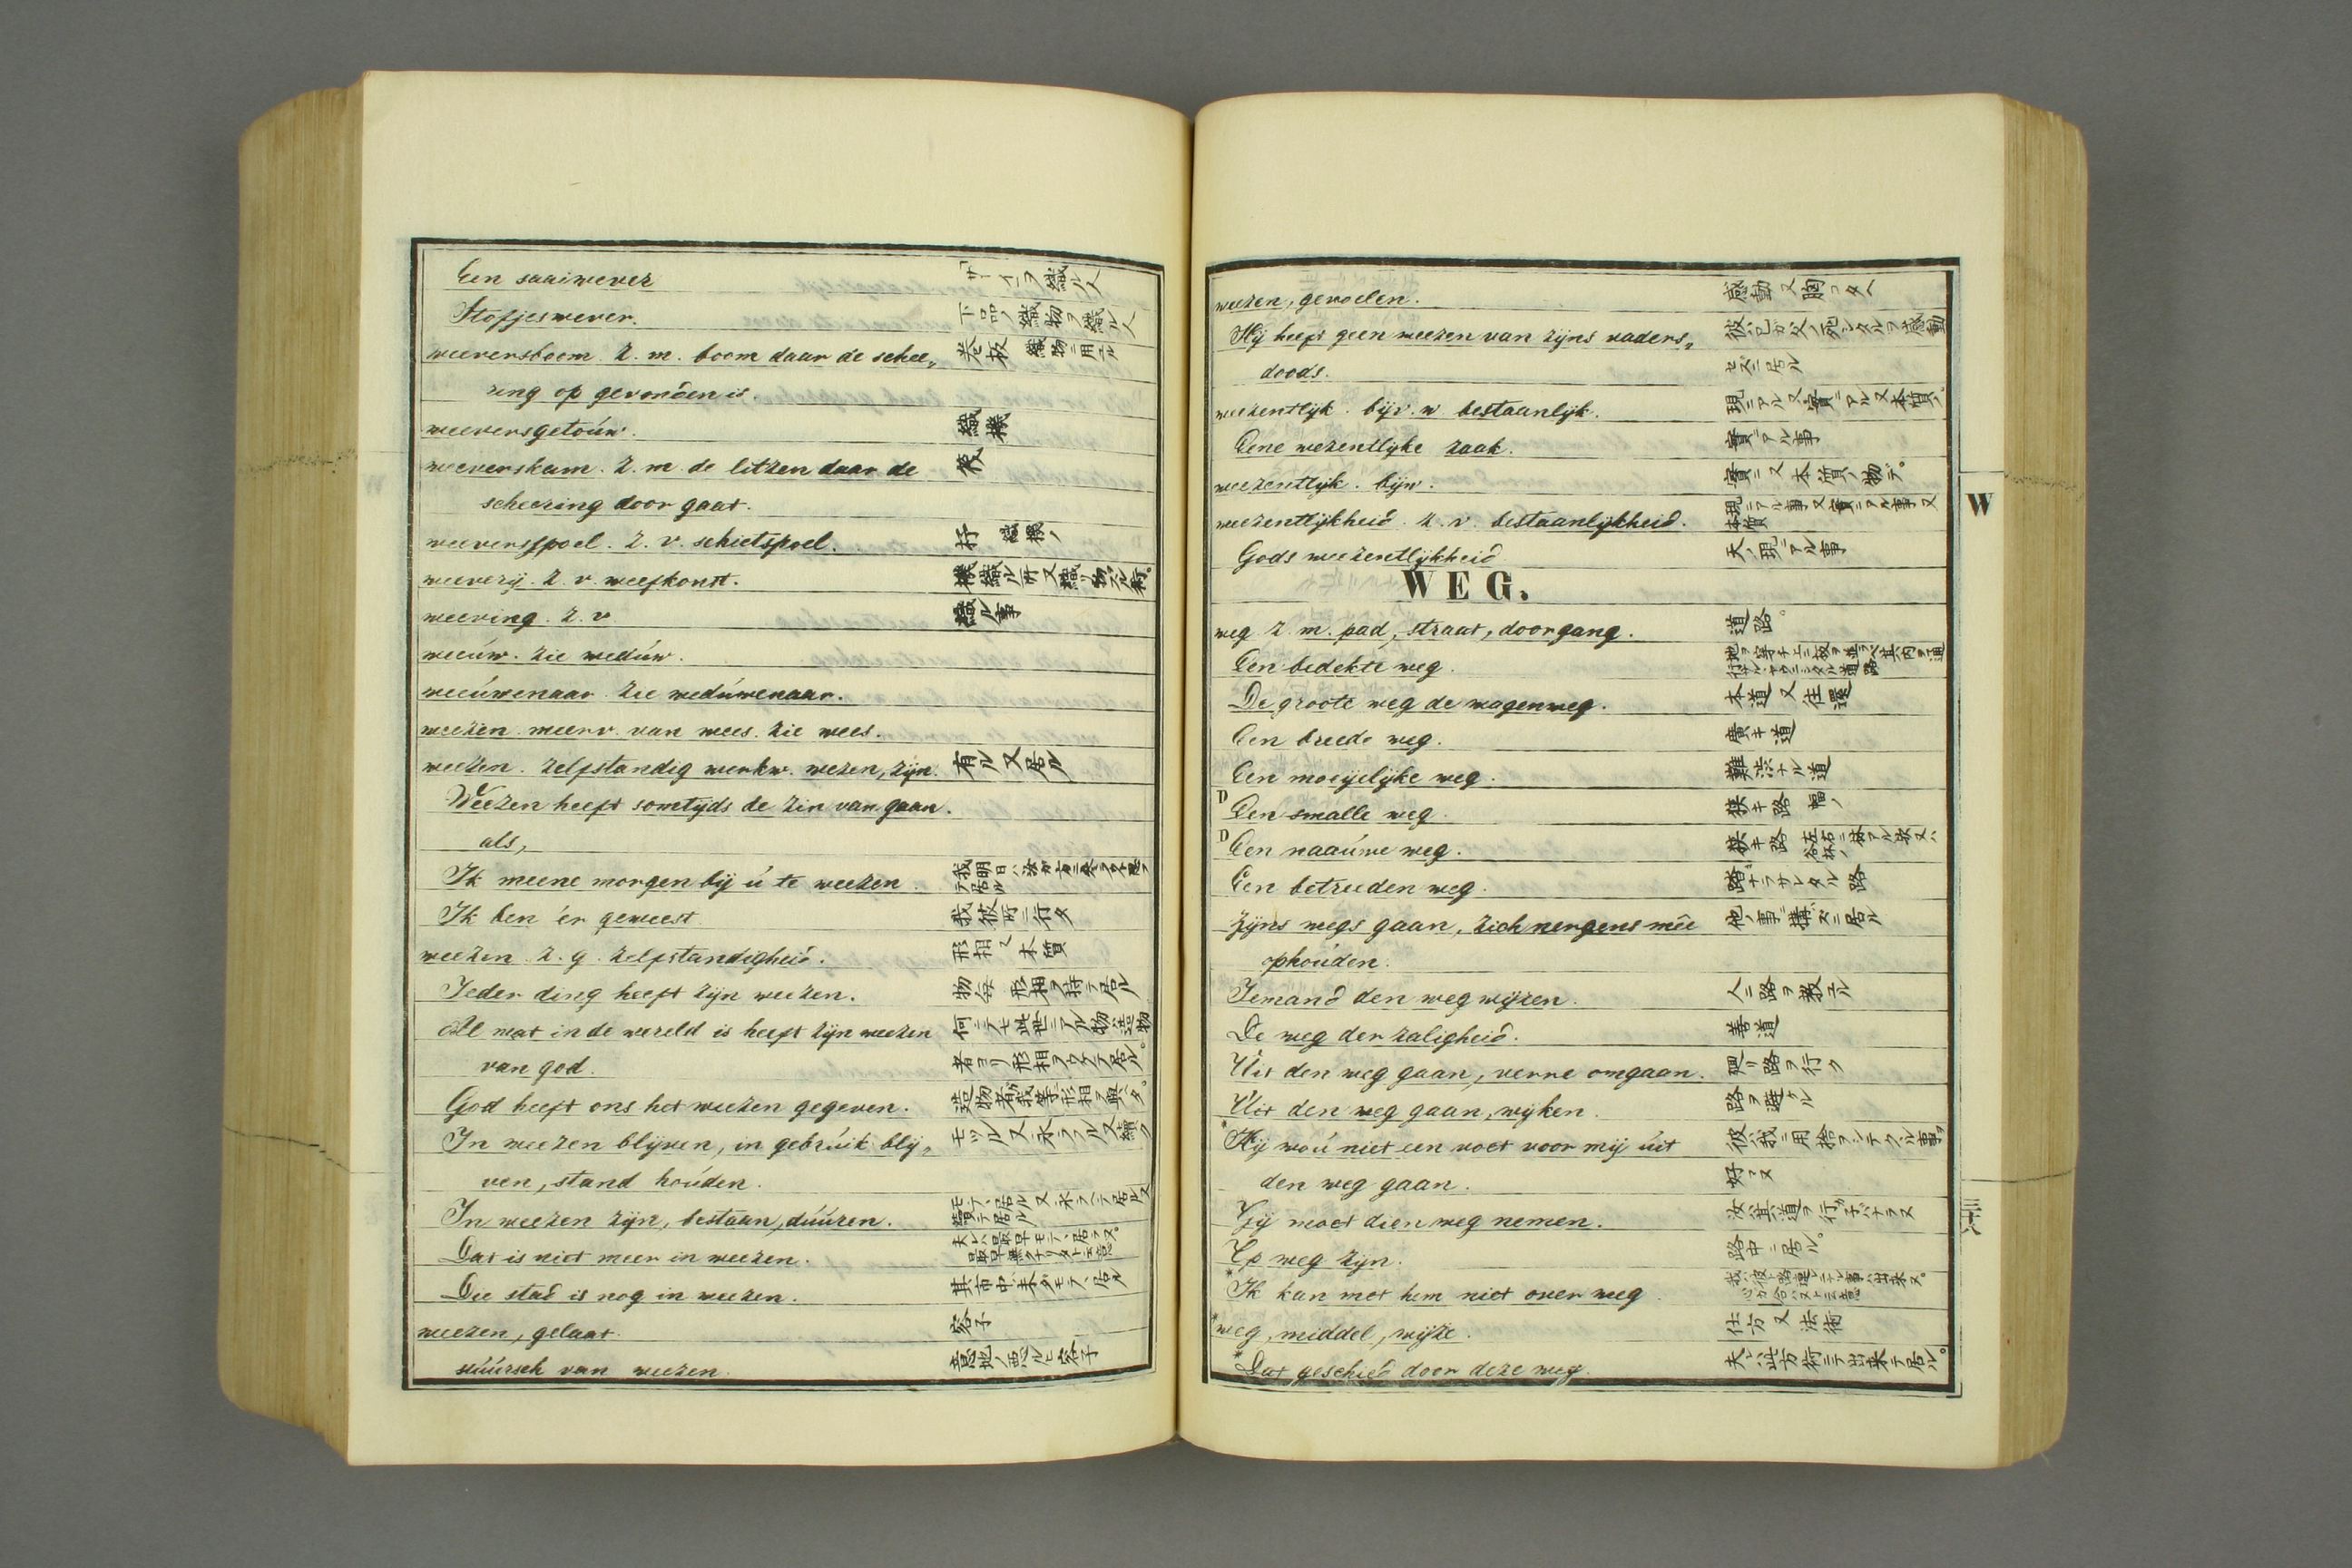 Een saaiwever 「サーイヲ織ル人
Stofjeswever. 下品ノ織物ヲ織ル人
weeversboom. z. m. boom daar de schee„ 巻板 織物ニ用フル
ring op gewonden is.
weeversgetóúw. 織機
weeverskam. z. m. de litzen daar de 筬
scheering door gaat.
weeversspoel. z. v. schietspoel. 杼 織機ノ
weeverij. z. v. weefkonst. 機織ル所又織リ物スル術。
weeving. z. v 織ル事
weeúw. zie wedúw.
weeúwenaar. zie wedúwenaar.
weezen. meerv. van wees. zie wees.
weezen. zelfstandig werkw. wezen, zijn. 有ル又居ル
Weezen heeft somtyds de zin van gaan.
als,
Ik meene morgen bij ú te weezen.
Ik ben 'er geweest 我彼所ニ行タ
weezen. z. g. zelfstandigheid. 形相又本質
Ieder ding heeft zijn weezen. 物毎形相ヲ持テ居ル
Al wat in de wereld is heeft zijn weezen 何ニテモ此世ニアル物造物
van god. 者ヨリ形相ヲウケテ居ル。
God heeft ons het weezen gegeven. 造物者ガ我等ニ形相ヲ與ヘタ。
In weezen blijven, in gebrúik blij„
ven, stand hoúden.
In weezen zijn, bestaan, dúúren.
Dat is niet meer in weezen.
Die stad is nog in weezen. 其市中ハ未ダモテ居ル
weezen, gelaat. 容子
stúúrsch van weezen. 意地ノ悪ルヒ容子
weezen, gevoelen.
Hij heeft geen weezen van zijns vaders„ 彼ハ己ガ父ノ死シタルヲ感動
doods. セズニ居ル
weezentlijk. bijv. w. bestaanlijk. 現ニアル又實ニアル又本質ノ
Eene wezentlyke zaak. 實ニアル事
weezentlijk. bijw. 實ニ又本質ノ物デ。
weezentlijkheid. z. v. bestaanlijkheid. 現ニアル事又實ニアル事又本質
Gods weezentlijkheid 天ノ現ニアル事
WEG.
weg. z. m. pad, straat, doorgang. 道路。
Een bedekte weg.
De groote weg de wagenweg. 本道又往還
Een breede weg. 廣キ道
Een moeijelijke weg. 難渋ナル道
D Een smalle weg. 狭キ路 幅ノ
D Een naaúwe weg. 狭キ路
Een betreeden weg.
Zijns wegs gaan, zich nergens meê 他ノ事ニ構ズニ居ル
ophoúden.
Iemand den weg wijzen. 人ニ路ヲ教エル
De weg der zaligheid. 善道
Uit den weg gaan, verre omgaan. 廻リ路ヲ行ク
Uit den weg gaan, wijken. 路ヲ避ケル
*Hij woú niet een voet voor mij úit
den weg gaan. 好マヌ
Gij moet dien weg nemen. 汝ハ其道ヲ行カ子バナラヌ
Op weg zijn. 路中ニ居ル。
*Ik kan met hem niet over weg.
*weg, middel, wijze. 仕方又法術
*Dat geschied door deze weg. 夫レハ此方術ニテ出来テ居ル。
W